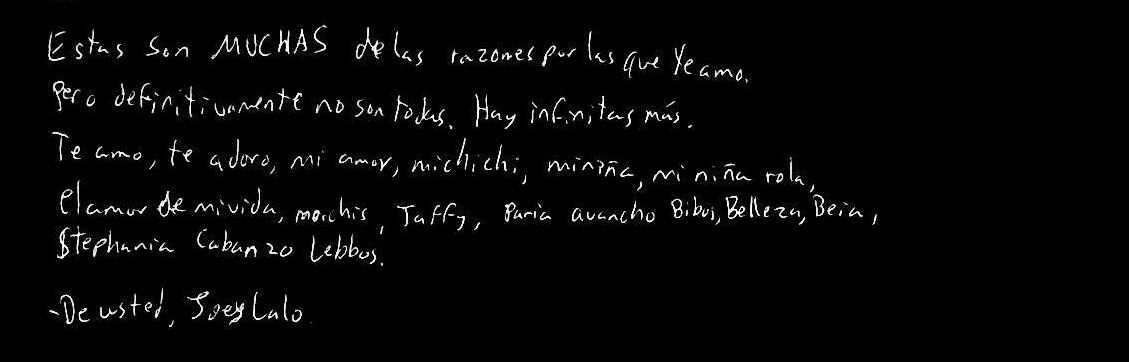 Estas son MUCHAS de las razones por las que Te amo.
Pero definitivamente no son todas. Hay infinitas más.
Te amo, te adoro, mi amor, michichi, miniña, mi niña rola,
el amor de mi vida, morchis, Taffy, avancho Bibui, Belleza, Beia,
Stephania Cabanzo Lebbos.
-De usted, Joey Lalo.